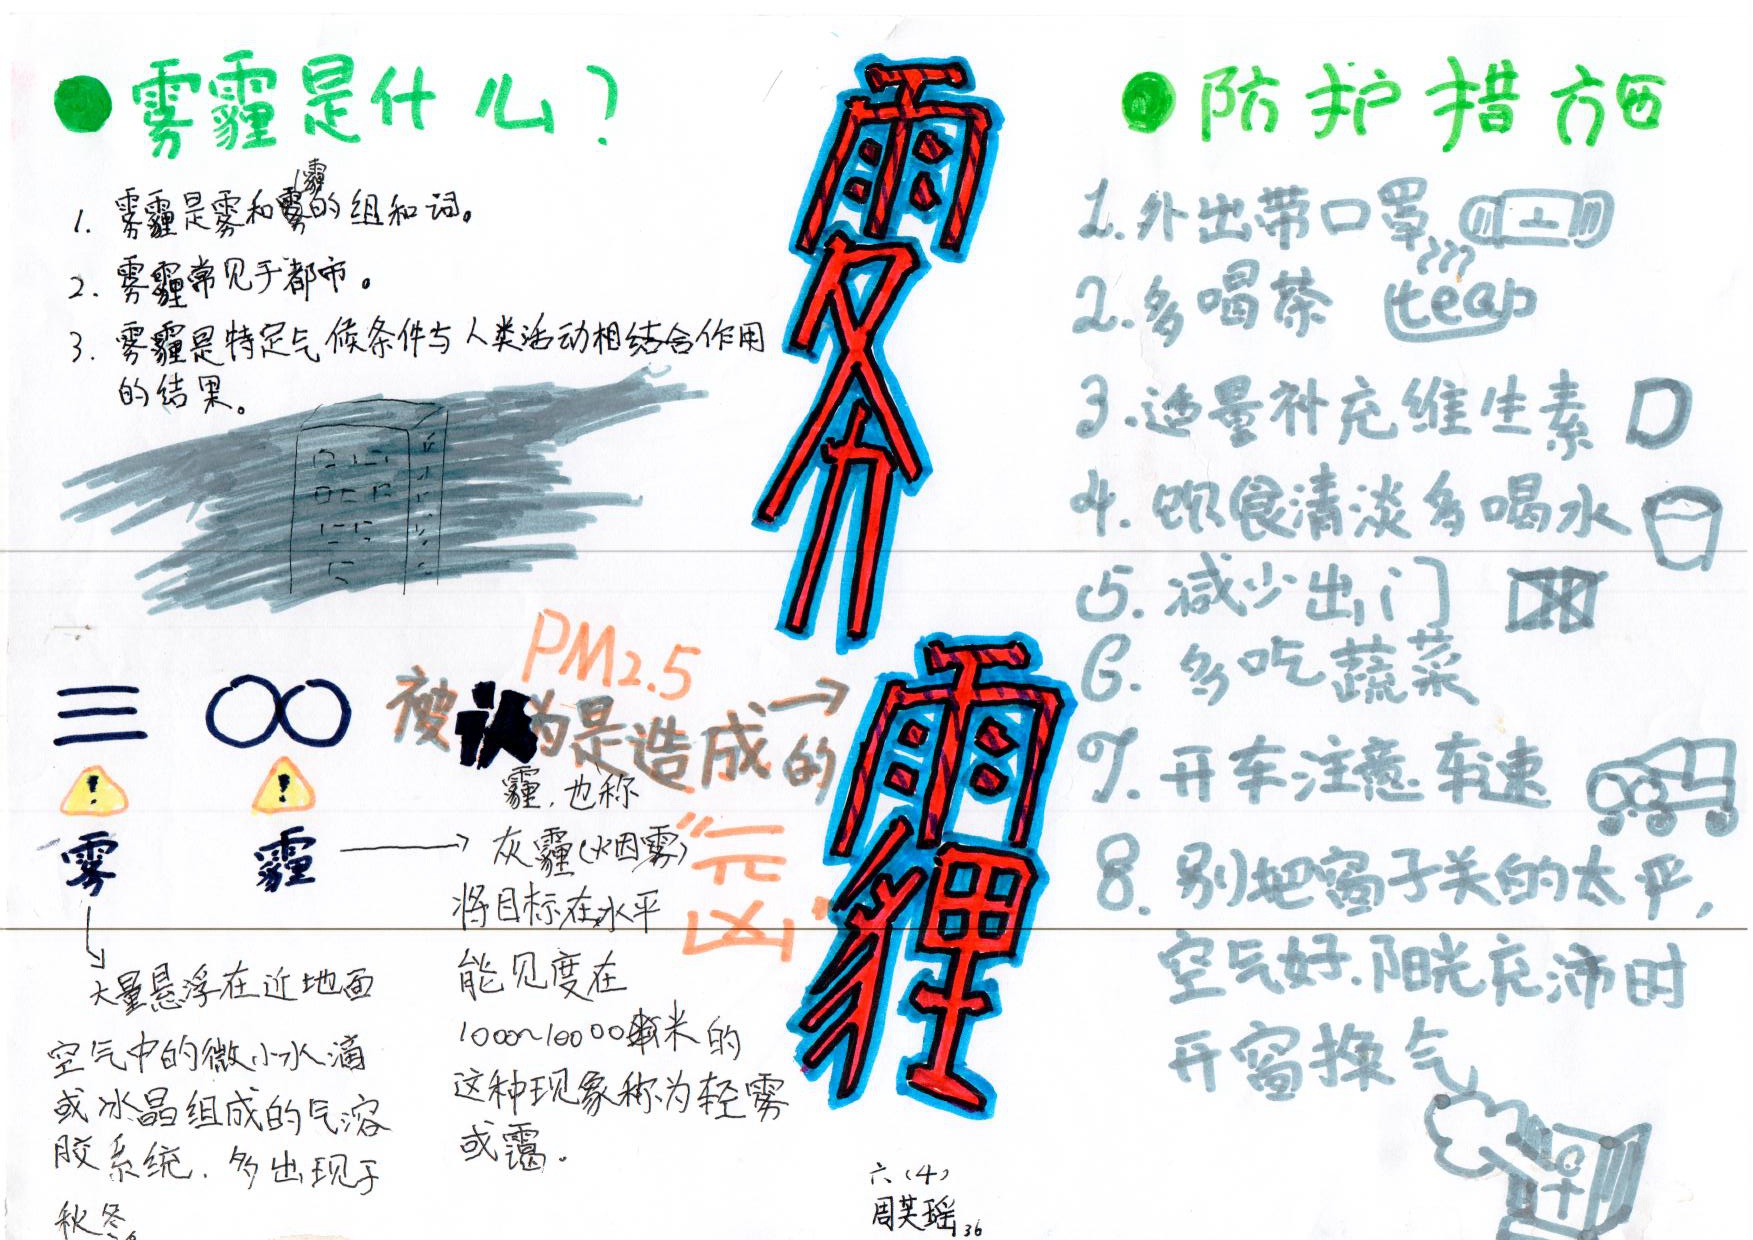 雾霾是什么?
1. 雾霾是雾和霾的组和词。
2. 雾霾常见于都市。
3. 雾霾是特定气候条件与人类活动相结合作用
的结果。
雾
霾
PM2.5
被认为是造成的
"元
凶"
雾
霾
霾,也称
灰霾(烟雾)
将目标在水平
能见度在
1000~10000米的
这种现象称为轻雾
或霭。
大量悬浮在近地面
空气中的微小水滴
或冰晶组成的气溶
胶系统,多出现于
秋冬。
防护措施
1.外出带口罩
2.多喝茶 tea
3.适量补充维生素
4.饮食清淡多喝水
5.减少出门
6.多吃蔬菜
7.开车注意车速
8.别把窗子关的太严,
空气好.阳光充沛时
开窗换气
六(4)
周芙瑶 36